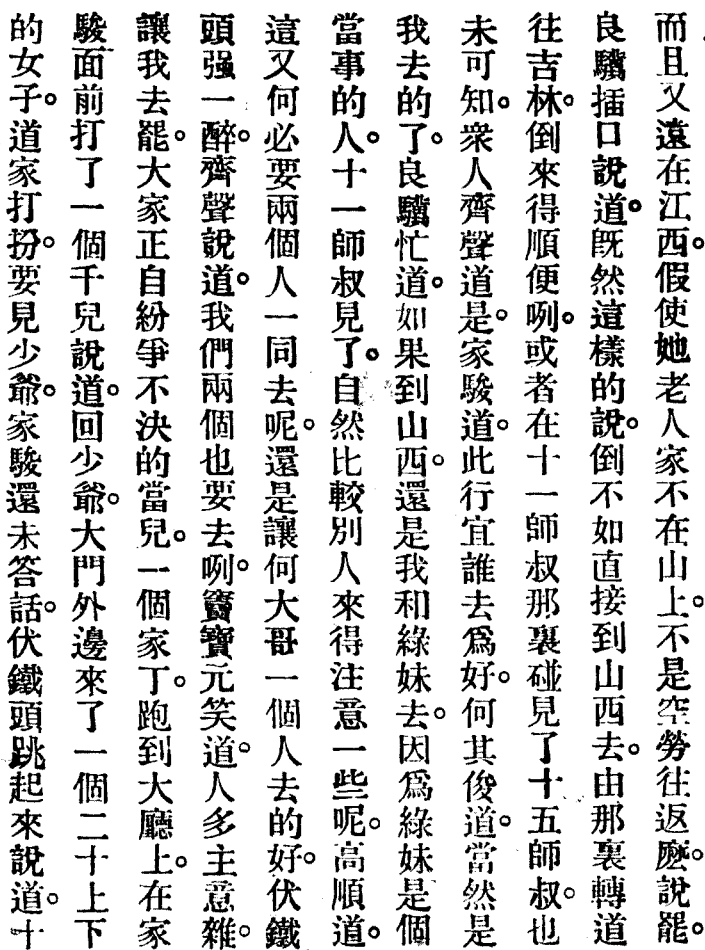 而且又遠在江西。假使她老人家不在山上。不是空勞往返麽。說罷。
良驥插口說道。旣然這樣的說。倒不如直接到山西去。由那裏轉道
往吉林。倒來得順便咧。或者在十一師叔那裏碰見了十五師叔。也
未可知。衆人齊聲道是。家駿道。此行宜誰去爲好。何其俊道。當然是
我去的了。良驥忙道。如果到山西。還是我和綠妹去。因爲綠妹是個
當事的人。十一師叔見了。自然比較別人來得注意一些呢。高順道。
這又何必要兩個人一同去呢。還是讓何大哥一個人去的好。伏鐵
頭强一醉。齊聲說道。我們兩個也要去咧。竇寶元笑道。人多主意雜。
讓我去罷。大家正自紛爭不決的當兒。一個家丁。跑到大廳上。在家
駿面前打了一個千兒說道。回少爺。大門外邊來了一個二十上下
的女子。道家打扮。要見少爺。家駿還未答話。伏鐵頭跳起來說道。十